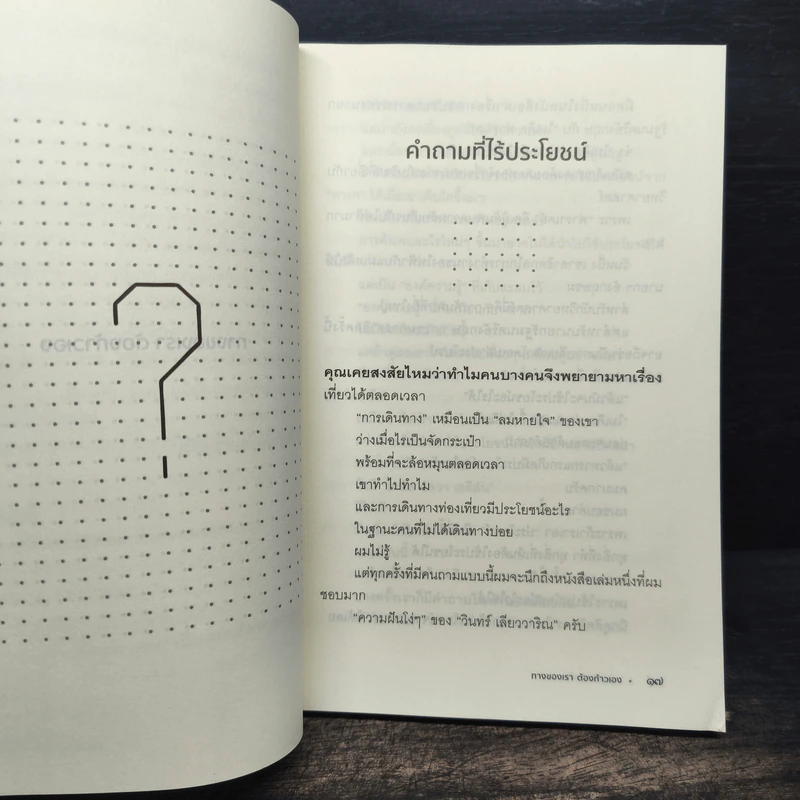 คำถามที่ไร้ประโยชน์
คุณเคยสงสัยไหมว่าทำไมคนบางคนจึงพยายามหาเรื่อง
เที่ยวได้ตลอดเวลา
“การเดินทาง” เหมือนเป็น “ลมหายใจ” ของเขา
ว่างเมื่อไรเป็นจัดกระเป๋า
พร้อมที่จะล้อหมุนตลอดเวลา
เขาทำไปทำไม
และการเดินทางท่องเที่ยวมีประโยชน์อะไร
ในฐานะคนที่ไม่ได้เดินทางบ่อย
ผมไม่รู้
แต่ทุกครั้งที่มีคนถามแบบนี้ผมจะนึกถึงหนังสือเล่มหนึ่งที่ผม
ชอบมาก
“ความฝันโง่ๆ” ของ “วินทร์ เลียววาริณ” ครับ
ทางของเรา ต้องก้าวเอง • ๑๗